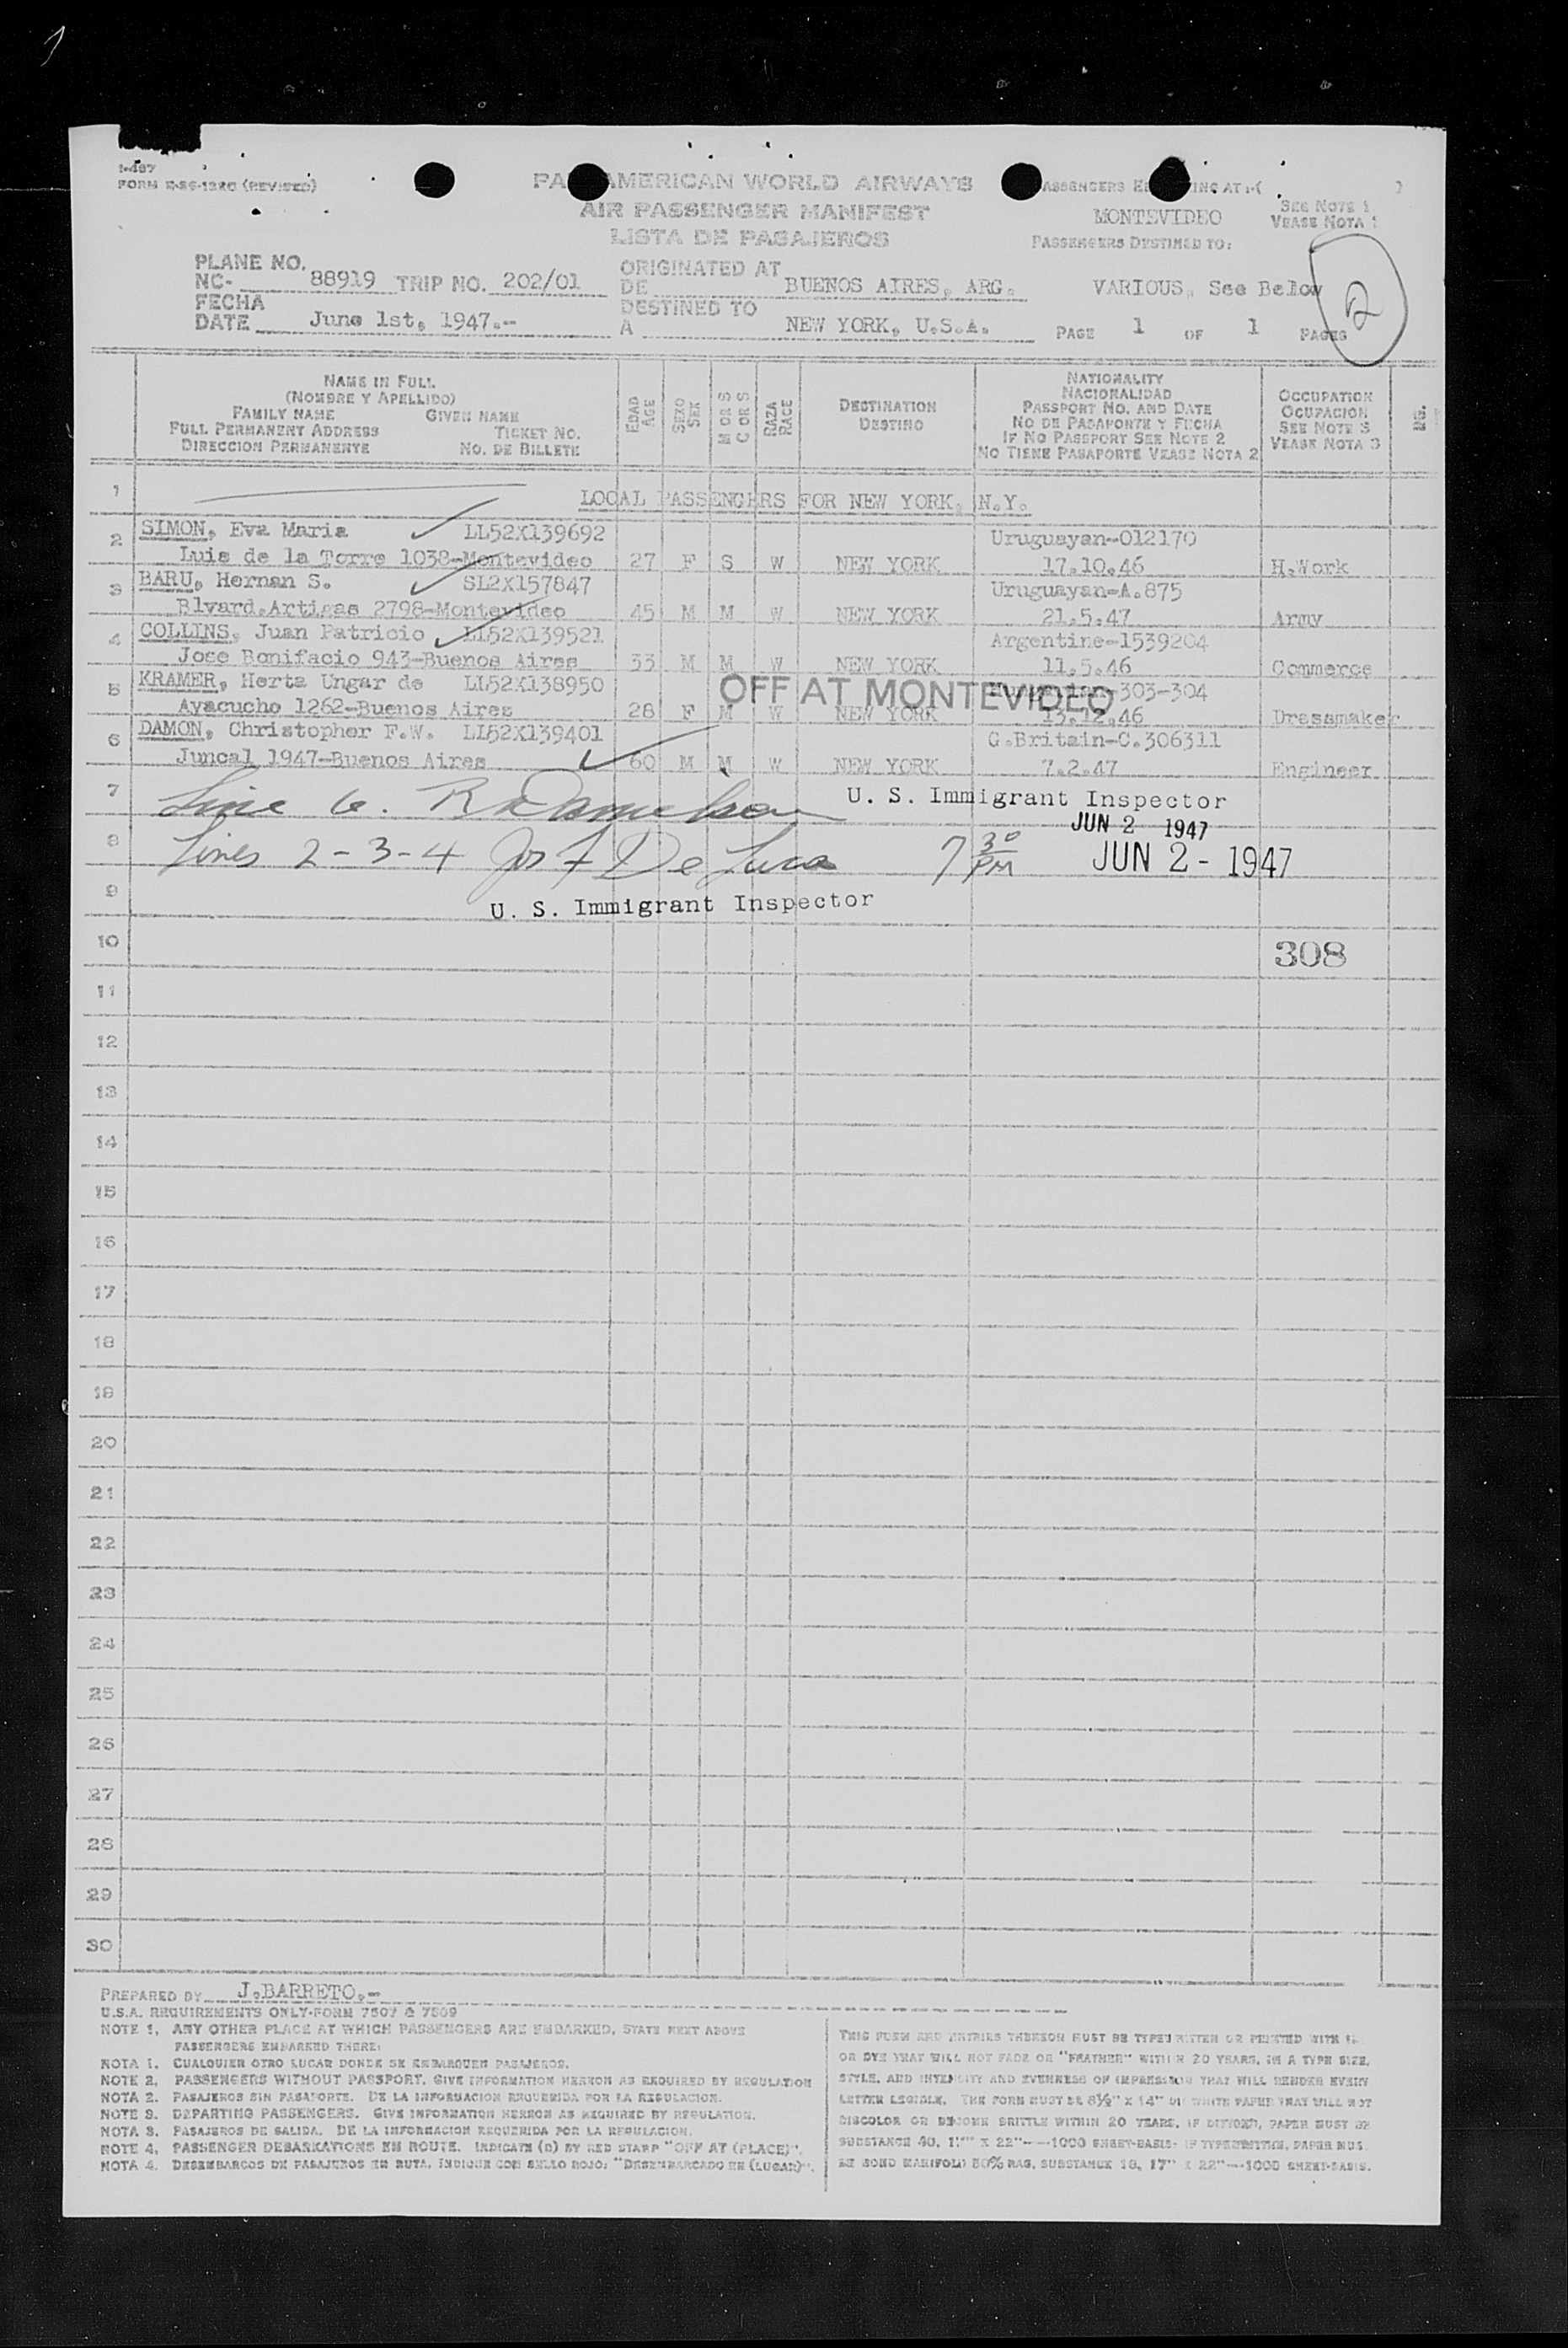 1-487
FORM E-86-122C (REVISED)
PAN AMERICAN WORLD AIRWAYS
AIR PASSENGER MANIFEST
LISTA DE PASAJEROS
PASSENGERS AT :-( )
MONTEVIDEO
SEE NOTE 1
VEASE NOTA 1
PASSENGERS DESTINED TO:
VARIOUS, See Below
2
PLANE NO.
NC- 88919 TRIP NO. 202/01
FECHA
DATE June 1st, 1947.--
ORIGINATED AT
DE BUENOS AIRES, ARG.
DESTINED TO
A NEW YORK, U.S.A.
PAGE 1 OF 1 PAGES
NAME IN FULL
(NOMBRE Y APELLIDO)
FAMILY NAME GIVEN NAME
FULL PERMANENT ADDRESS TICKET NO.
DIRECCION PERMANENTE NO. DE BILLETE
EDAD
AGE
SEXO
SEX
M OR S
C OR S
RAZA
RACE
DESTINATION
DESTINO
NATIONALITY
NACIONALIDAD
PASSPORT NO. AND DATE
NO DE PASAPORTE Y FECHA
IF NO PASSPORT SEE NOTE 2
NO TIENE PASAPORTE VEASE NOTA 2
OCCUPATION
OCUPACION
SEE NOTE 3
VEASE NOTA 3
1 LOCAL PASSENGERS FOR NEW YORK, N.Y.
2 SIMON, Eva Maria LL52X139692 Uruguayan-012170
Luis de la Torre 1038-Montevideo 27 F S W NEW YORK 17.10.46 H.Work
3 BARU, Hernan S. SL2X157847 Uruguayan-A.875
Blvard.Artigas 2798-Montevideo 45 M M W NEW YORK 21.5.47 Army
4 COLLINS, Juan Patricio LL52X139521 Argentine-1539204
Jose Bonifacio 943-Buenos Aires 33 M M W NEW YORK 11.5.46 Commerce
5 KRAMER, Herta Ungar de LL52X138950 303-304
OFF AT MONTEVIDEO
Ayacucho 1262-Buenos Aires 28 F M W NEW YORK 13.12.46 Dressmaker
6 DAMON, Christopher F.W. LL52X139401 G.Britain-C.306311
Juncal 1947-Buenos Aires 60 M M W NEW YORK 7.2.47 Engineer
7 Line 6. U. S. Immigrant Inspector
JUN 2 1947
8 Lines 2-3-4 Jos F De Luca 7 30 PM JUN 2 - 1947
9 U. S. Immigrant Inspector
10 308
11
12
13
14
15
16
17
18
19
20
21
22
23
24
25
26
27
28
29
30
PREPARED BY J.BARRETO.-
U.S.A. REQUIREMENTS ONLY-FORM 7507 & 7509
NOTE 1. ANY OTHER PLACE AT WHICH PASSENGERS ARE EMBARKED, STATE NEXT ABOVE
PASSENGERS EMBARKED THERE:
NOTA 1. CUALQUIER OTRO LUGAR DONDE SE EMBARQUEN PASAJEROS.
NOTE 2. PASSENGERS WITHOUT PASSPORT. GIVE INFORMATION HEREON AS REQUIRED BY REGULATION
NOTA 2. PASAJEROS SIN PASAPORTE. DE LA INFORMACION REQUERIDA POR LA REGULACION.
NOTE 3. DEPARTING PASSENGERS. GIVE INFORMATION HEREON AS REQUIRED BY REGULATION.
NOTA 3. PASAJEROS DE SALIDA. DE LA INFORMACION REQUERIDA POR LA REGULACION.
NOTE 4. PASSENGER DEBARKATIONS EN ROUTE. INDICATE (D) BY RED STAMP "OFF AT (PLACE)".
NOTA 4. DESEMBARCOS DE PASAJEROS EN RUTA, INDIQUE CON SELLO ROJO: "DESEMBARCADO EN (LUGAR)".
THIS FORM AND ENTRIES THEREON MUST BE TYPEWRITTEN OR PRINTED WITH
OR DYE THAT WILL NOT FADE OR "FEATHER" WITHIN 20 YEARS, IN A TYPE SIZE,
STYLE, AND INTENSITY AND EVENNESS OF IMPRESSION THAT WILL RENDER EVERY
LETTER LEGIBLE. THE FORM MUST BE 8½" X 14" ON WHITE PAPER THAT WILL NOT
DISCOLOR OR BECOME BRITTLE WITHIN 20 YEARS. IF PAPER MUST BE
SUBSTANCE 40, 17" X 22"--1000 SHEET-BASIS: IF TYPEWRITTEN, PAPER MUS.
BE BOND MANIFOLD 50% RAG, SUBSTANCE 18, 17" X 22"--1000 SHEET-BASIS.